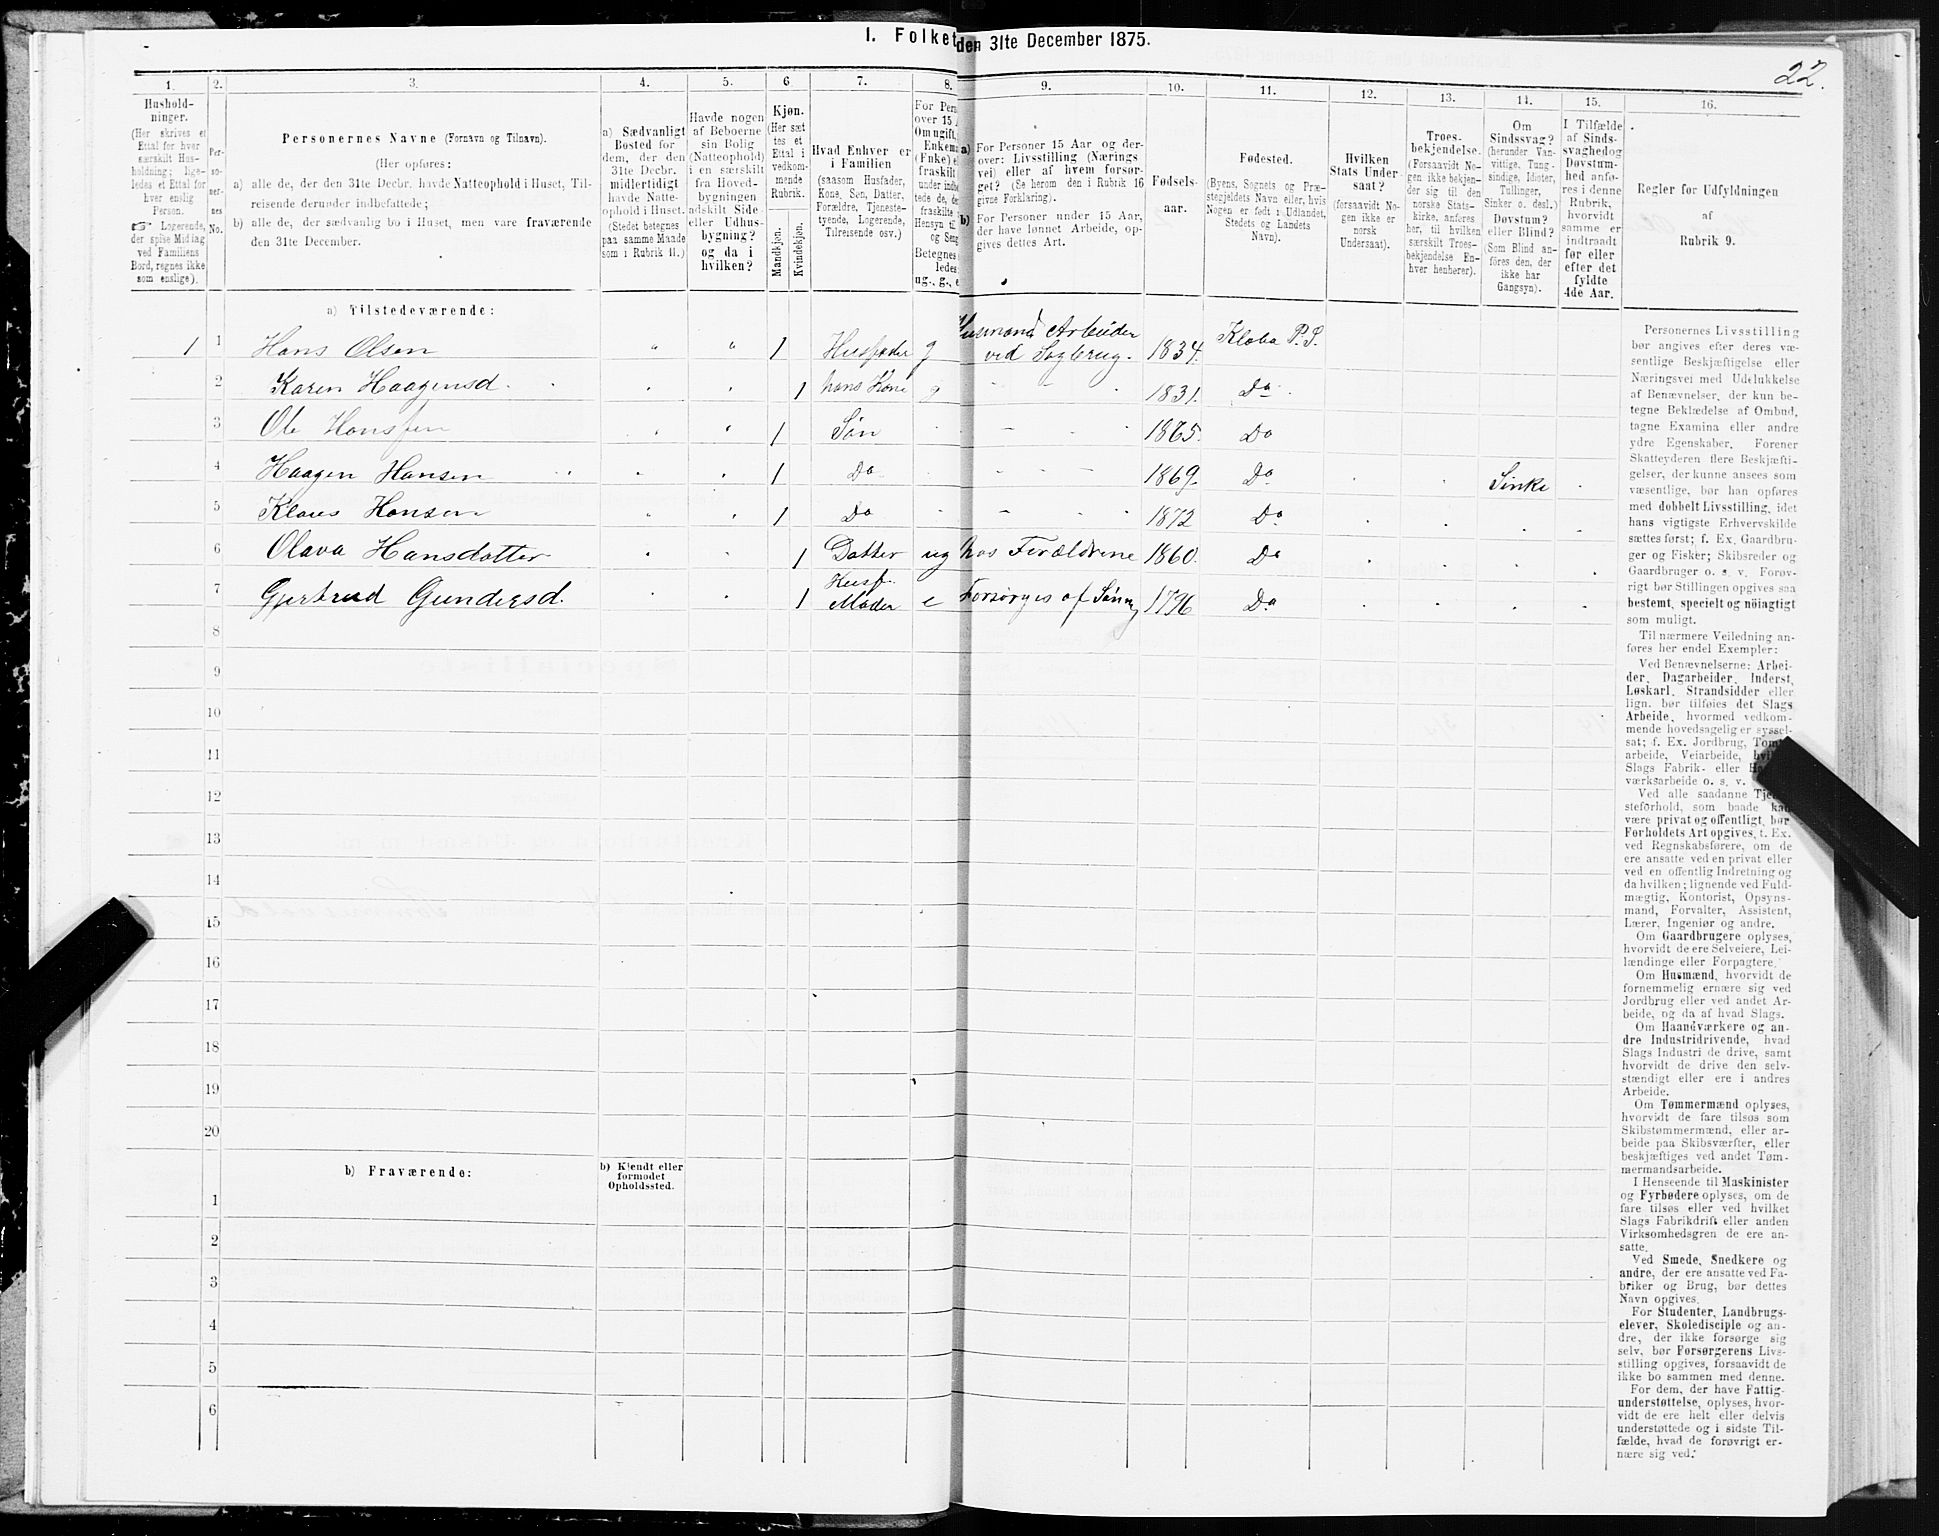 I. Folket den 31te December 1875.
22.
1. 2. 3. 4. 5. 6 7. 8. 9. 10. 11. 12. 13. 14. 15. 16.
Hushold-
ninger.
(Her skrives et
Ettal for hver
særskilt Hus-
holdning; lige-
ledes et Ettal for
hver enslig
Person.
☞ Logerende,
der spise Middag
ved Familiens
Bord, regnes ikke
som enslige).
Per-
so-
ner-
nes
No.
Personernes Navne (Fornavn og Tilnavn).
(Her opføres:
a) alle de, der den 31te Decbr. havde Natteophold i Huset, Til-
reisende derunder indbefattede;
b) alle de, der sædvanlig bo i Huset, men vare fraværende
den 31te December.
a) Sædvanligt
Bosted for
dem, der den
31te Decbr.
midlertidigt
havde Natte-
ophold i Huset.
(Stedet betegnes
paa samme Maade
som i Rubrik 11.)
Havde nogen
af Beboerne
sin Bolig
(Natteophold)
i en særskilt
fra Hoved-
bygningen
adskilt Side-
eller Udhus-
bygning?
og da i
hvilken?
Kjøn.
(Her sæt
tes et
Ettal i
vedkom-
mende
Rubrik.
Mandkjøn.
Kvindekjøn.
Hvad Enhver er
i Familien
(saasom Husfader,
Kone, Søn, Datter,
Forældre, Tjeneste-
tyende, Logerende,
Tilreisende osv.)
For Pers
over 15 A
Om ugift,
Enkem
(Fnke) e
fraskilt
under indbe
tede de, de
fraskilte
Hensyn til
og Seng
Betegnes
ledes
ug., g., e
a) For Personer 15 Aar og der-
over: Livsstilling (Nærings
vei) eller af hvem forsør-
get? (Se herom den i Rubrik 16
givne Forklaring).
b) For Personer under 15 Aar,
der have lønnet Arbeide, op-
gives dettes Art.
Fødsels-
aar.
Fødested.
(Byens, Sognets og Præ-
stegjeldets Navn eller, hvis
Nogen er født i Udlandet,
Stedets og Landets
Navn).
Hvilken
Stats Under
saat?
(forsaavidt No-
gen ikke er
norsk
Undersaat).
Troes-
bekjendelse.
(Forsaavidt No-
gen ikke bekjen-
der sig til den
norske Stats-
kirke, anføres
her, til hvilken
særskilt Troes-
bekjendelse En-
hver henhører).
Om
Sindssvag?
(herunder Van-
vittige, Tung-
sindige, Idioter,
Tullinger,
Sinker o. desl.)
Døvstum?
eller Blind?
(Som Blind an-
føres den, der
ikke har
Gangsyn).
I Tilfælde
af Sinds-
svaghed og
Døvstum-
hed anfø-
res i denne
Rubrik,
hvorvidt
samme er
indtraadt
før eller
efter det
fyldte
4de Aar.
Regler for Udfyldningen
af
Rubrik 9.
a) Tilstedeværende:
1 1 Hans Olsen " " 1 Husfader g Husmand Arbeider ved Sagbrug. 1834. Klæbo P.S.
2 Karen Haagensd. 1 hans Kone g 1831. Do
3 Ole Hanssen 1 Søn 1865. Do
4 Haagen Hansen 1 Do 1869. Do Sinke
5 Klaus Hansen 1 Do 1872 Do
6 Olava Hansdatter 1 Datter ug hos Forældrene 1860. Do
7 Gjertrud Gundersd. 1 Husf. Moder e Forsørges af Sønn 1796 Do
8
9
10
11
12
13
14
15
16
17
18
19
20
b) Fraværende:
b) Kjendt eller
formodet
Opholdssted.
1
2
3
4
5
6
Personernes Livsstilling
bør angives efter deres væ-
sentlige Beskjæftigelse eller
Næringsvei med Udelukkelse
af Benævnelser, der kun be-
tegne Beklædelse af Ombud,
tagne Examina eller andre
ydre Egenskaber. Forener
Skatteyderen flere Beskjæfti-
gelser, der kunne ansees som
væsentlige, bør han opføres
med dobbelt Livsstilling, idet
hans vigtigste Erhvervskilde
sættes først; f. Ex. Gaardbru-
ger og Fisker; Skibsreder og
Gaardbruger o. s. v. Forøv-
rigt bør Stillingen opgives saa
bestemt, specielt og nöiagtigt
som muligt.
Til nærmere Veiledning an-
føres her endel Exempler:
Ved Benævnelserne: Arbei-
der, Dagarbeider, Inderst,
Løskarl, Strandsidder eller
lign. bør tilføies det Slags
Arbeide, hvormed vedkom-
mende hovedsagelig er syssel-
sat; f. Ex. Jordbrug, Tomt
arbeide, Veiarbeide, hvil
Slags Fabrik- eller Ha
værksarbeide o. s. v.
Ved alle saadanne Tje
steforhold, som baade kan
være privat og offentligt, bør
Forholdets Art opgives, f. Ex.
ved Regnskabsførere, om de
ere ansatte ved en privat eller
ved en offentlig Indretning og
da hvilken; lignende ved Fuld-
mægtig, Kontorist, Opsyns-
mand, Forvalter, Assistent,
Lærer, Ingeniør og andre.
Om Gaardbrugere oplyses,
hvorvidt de ere Selveiere, Lei-
lændinge eller Forpagtere.
Om Husmænd, hvorvidt de
fornemmelig ernære sig ved
Jordbrug eller ved andet Ar-
beide, og da af hvad Slags.
Om Haandværkere og an-
dre Industridrivende, hvad
Slags Industri de drive, samt
hvorvidt de drive den selv-
stændigt eller ere i andres
Arbeide.
Om Tømmermænd oplyses,
hvorvidt de fare tilsøs som
Skibstømmermænd, eller ar-
beide paa Skibsværfter, eller
beskjæftiges ved andet Tøm-
mermandsarbeide.
I Henseende til Maskinister
og Fyrbødere oplyses, om de
fare tilsøs eller ved hvilket
Slags Fabrikdrift eller anden
Virksomhedsgren de ere an-
satte.
Ved Smede, Snedkere og
andre, der ere ansatte ved Fa-
briker og Brug, bør dettes
Navn opgives.
For Studenter, Landbrugs-
elever, Skoledisciple og an-
dre, der ikke forsørge sig
selv, bør Forsørgerens Livs-
stilling opgives, forsaavidt de
ikke bo sammen med denne.
For dem, der have Fattig-
understøttelse, oplyses, hvor-
vidt de ere helt eller delvis
understøttede og i sidste Til-
fælde, hvad de forøvrigt er-
nære sig ved.